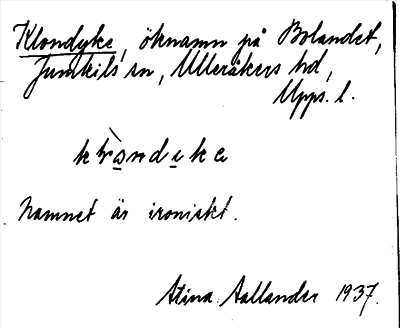 Klondyke, öknamn på Bolandet,
Jumkils sn, Ulleråkers hd,
Upps. l.
Namnet är ironiskt.
Stina Aallander 1937.